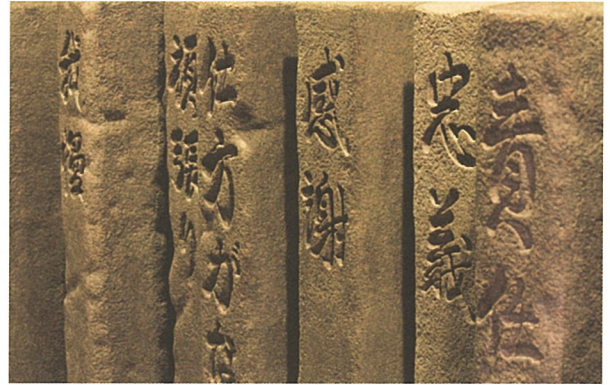 責任
忠義
感謝
仕方がな
頑張り
我慢